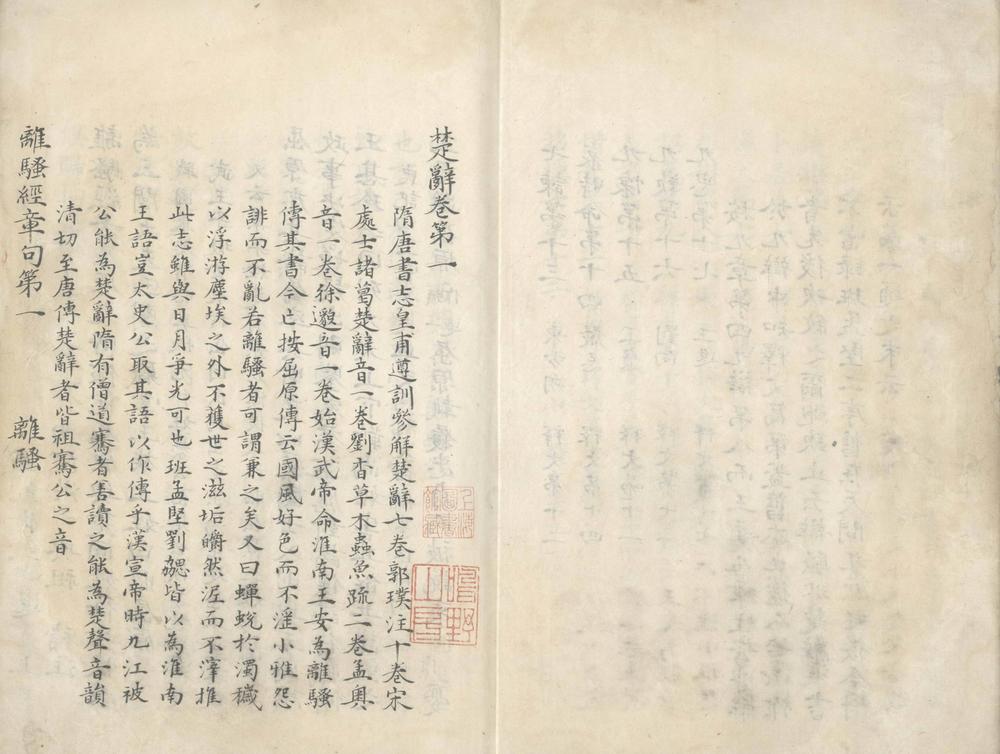 楚辭卷第一
隋唐書志皇甫遵訓參解楚辭七卷郭璞注十卷宋
處士諸葛楚辭音一卷劉杳草木蟲魚疏二卷孟奧
音一卷徐邈音一卷始漢武帝命淮南王安為離騷
傳其書今亡按屈原傳云國風好色而不淫小雅怨
誹而不亂若離騷者可謂兼之矣又曰蟬蛻於濁穢
以浮游塵埃之外不獲世之滋垢皭然泥而不滓推
此志雖與日月爭光可也班孟堅劉勰皆以為淮南
王語豈太史公取其語以作傳乎漢宣帝時九江被
公能為楚辭隋有僧道騫者善讀之能為楚聲音韻
清切至唐傳楚辭者皆祖騫公之音
離騷經章句第一 離騷